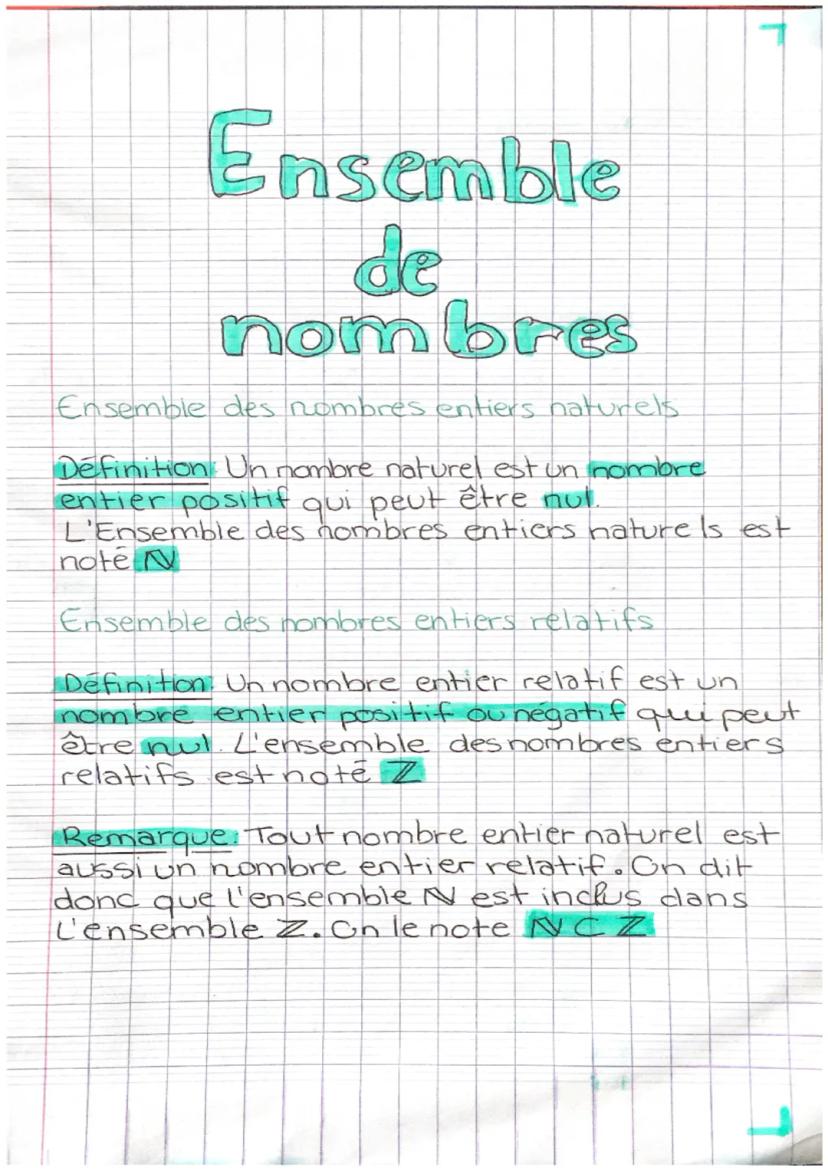 Ensemble
de
nombres
Ensemble des nombres entiers naturels
Définition: Un nombre naturel est un nombre
entier positif qui peut être nul.
L'Ensemble des nombres entiers naturels est
noté ℕ
Ensemble des nombres entiers relatifs
Définition: Un nombre entier relatif est un
nombre entier positif ou négatif qui peut
être nul. L'ensemble des nombres entiers
relatifs est noté ℤ
Remarque: Tout nombre entier naturel est
aussi un nombre entier relatif. On dit
donc que l'ensemble ℕ est inclus dans
L'ensemble ℤ. On le note ℕ ⊂ ℤ